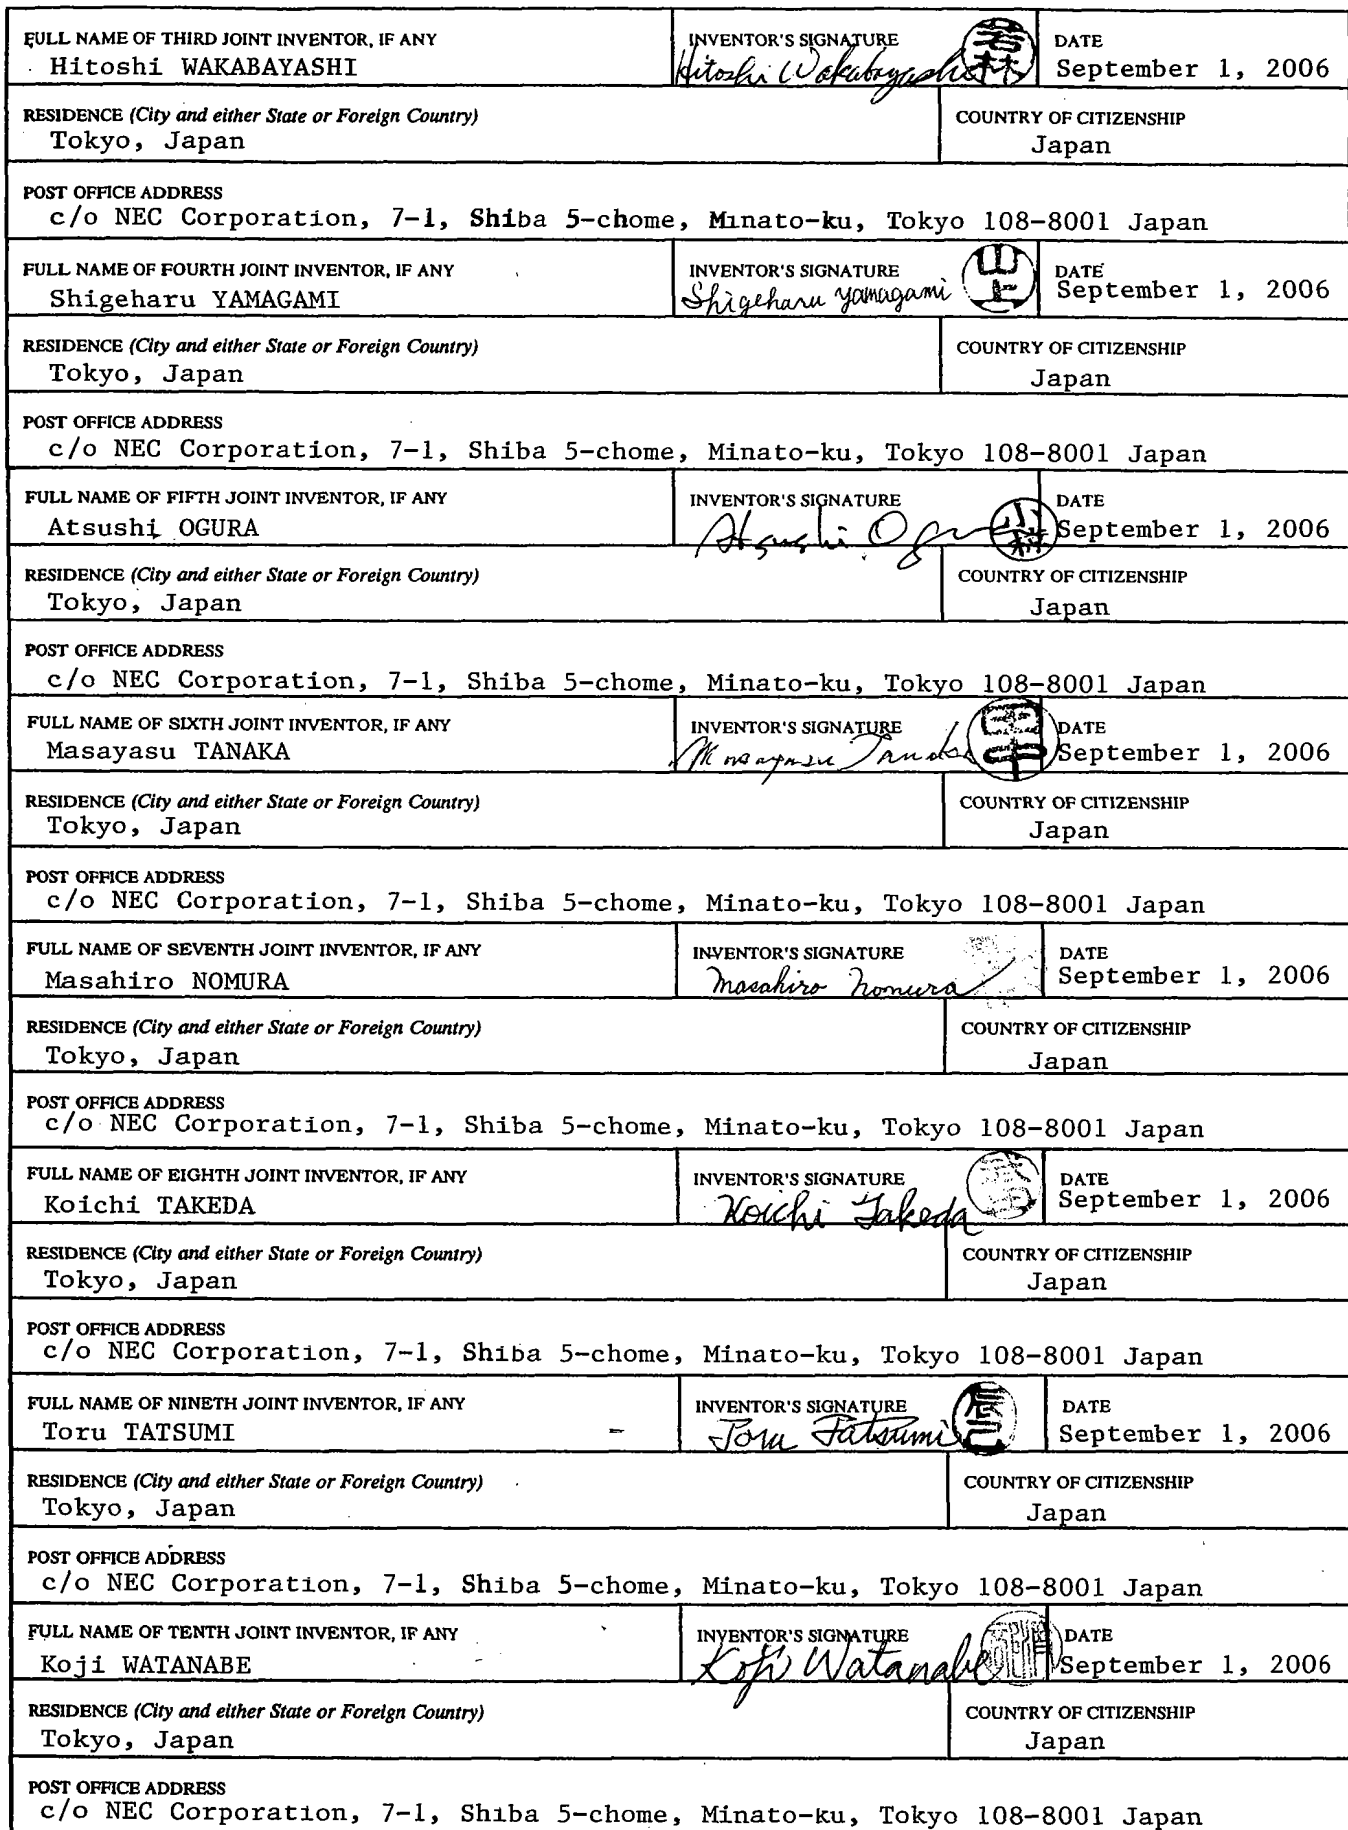 FULL NAME OF THIRD JOINT INVENTOR, IF ANY
Hitoshi WAKABAYASHI
INVENTOR'S SIGNATURE
Hitoshi Wakabayashi
若林
DATE
September 1, 2006
RESIDENCE (City and either State or Foreign Country)
Tokyo, Japan
COUNTRY OF CITIZENSHIP
Japan
POST OFFICE ADDRESS
c/o NEC Corporation, 7-1, Shiba 5-chome, Minato-ku, Tokyo 108-8001 Japan
FULL NAME OF FOURTH JOINT INVENTOR, IF ANY
Shigeharu YAMAGAMI
INVENTOR'S SIGNATURE
Shigeharu Yamagami
山上
DATE
September 1, 2006
RESIDENCE (City and either State or Foreign Country)
Tokyo, Japan
COUNTRY OF CITIZENSHIP
Japan
POST OFFICE ADDRESS
c/o NEC Corporation, 7-1, Shiba 5-chome, Minato-ku, Tokyo 108-8001 Japan
FULL NAME OF FIFTH JOINT INVENTOR, IF ANY
Atsushi OGURA
INVENTOR'S SIGNATURE
Atsushi Ogura
DATE
September 1, 2006
RESIDENCE (City and either State or Foreign Country)
Tokyo, Japan
COUNTRY OF CITIZENSHIP
Japan
POST OFFICE ADDRESS
c/o NEC Corporation, 7-1, Shiba 5-chome, Minato-ku, Tokyo 108-8001 Japan
FULL NAME OF SIXTH JOINT INVENTOR, IF ANY
Masayasu TANAKA
INVENTOR'S SIGNATURE
Masayasu Tanaka
田中
DATE
September 1, 2006
RESIDENCE (City and either State or Foreign Country)
Tokyo, Japan
COUNTRY OF CITIZENSHIP
Japan
POST OFFICE ADDRESS
c/o NEC Corporation, 7-1, Shiba 5-chome, Minato-ku, Tokyo 108-8001 Japan
FULL NAME OF SEVENTH JOINT INVENTOR, IF ANY
Masahiro NOMURA
INVENTOR'S SIGNATURE
Masahiro Nomura
DATE
September 1, 2006
RESIDENCE (City and either State or Foreign Country)
Tokyo, Japan
COUNTRY OF CITIZENSHIP
Japan
POST OFFICE ADDRESS
c/o NEC Corporation, 7-1, Shiba 5-chome, Minato-ku, Tokyo 108-8001 Japan
FULL NAME OF EIGHTH JOINT INVENTOR, IF ANY
Koichi TAKEDA
INVENTOR'S SIGNATURE
Koichi Takeda
DATE
September 1, 2006
RESIDENCE (City and either State or Foreign Country)
Tokyo, Japan
COUNTRY OF CITIZENSHIP
Japan
POST OFFICE ADDRESS
c/o NEC Corporation, 7-1, Shiba 5-chome, Minato-ku, Tokyo 108-8001 Japan
FULL NAME OF NINETH JOINT INVENTOR, IF ANY
Toru TATSUMI
INVENTOR'S SIGNATURE
Toru Tatsumi
辰巳
DATE
September 1, 2006
RESIDENCE (City and either State or Foreign Country)
Tokyo, Japan
COUNTRY OF CITIZENSHIP
Japan
POST OFFICE ADDRESS
c/o NEC Corporation, 7-1, Shiba 5-chome, Minato-ku, Tokyo 108-8001 Japan
FULL NAME OF TENTH JOINT INVENTOR, IF ANY
Koji WATANABE
INVENTOR'S SIGNATURE
Koji Watanabe
DATE
September 1, 2006
RESIDENCE (City and either State or Foreign Country)
Tokyo, Japan
COUNTRY OF CITIZENSHIP
Japan
POST OFFICE ADDRESS
c/o NEC Corporation, 7-1, Shiba 5-chome, Minato-ku, Tokyo 108-8001 Japan